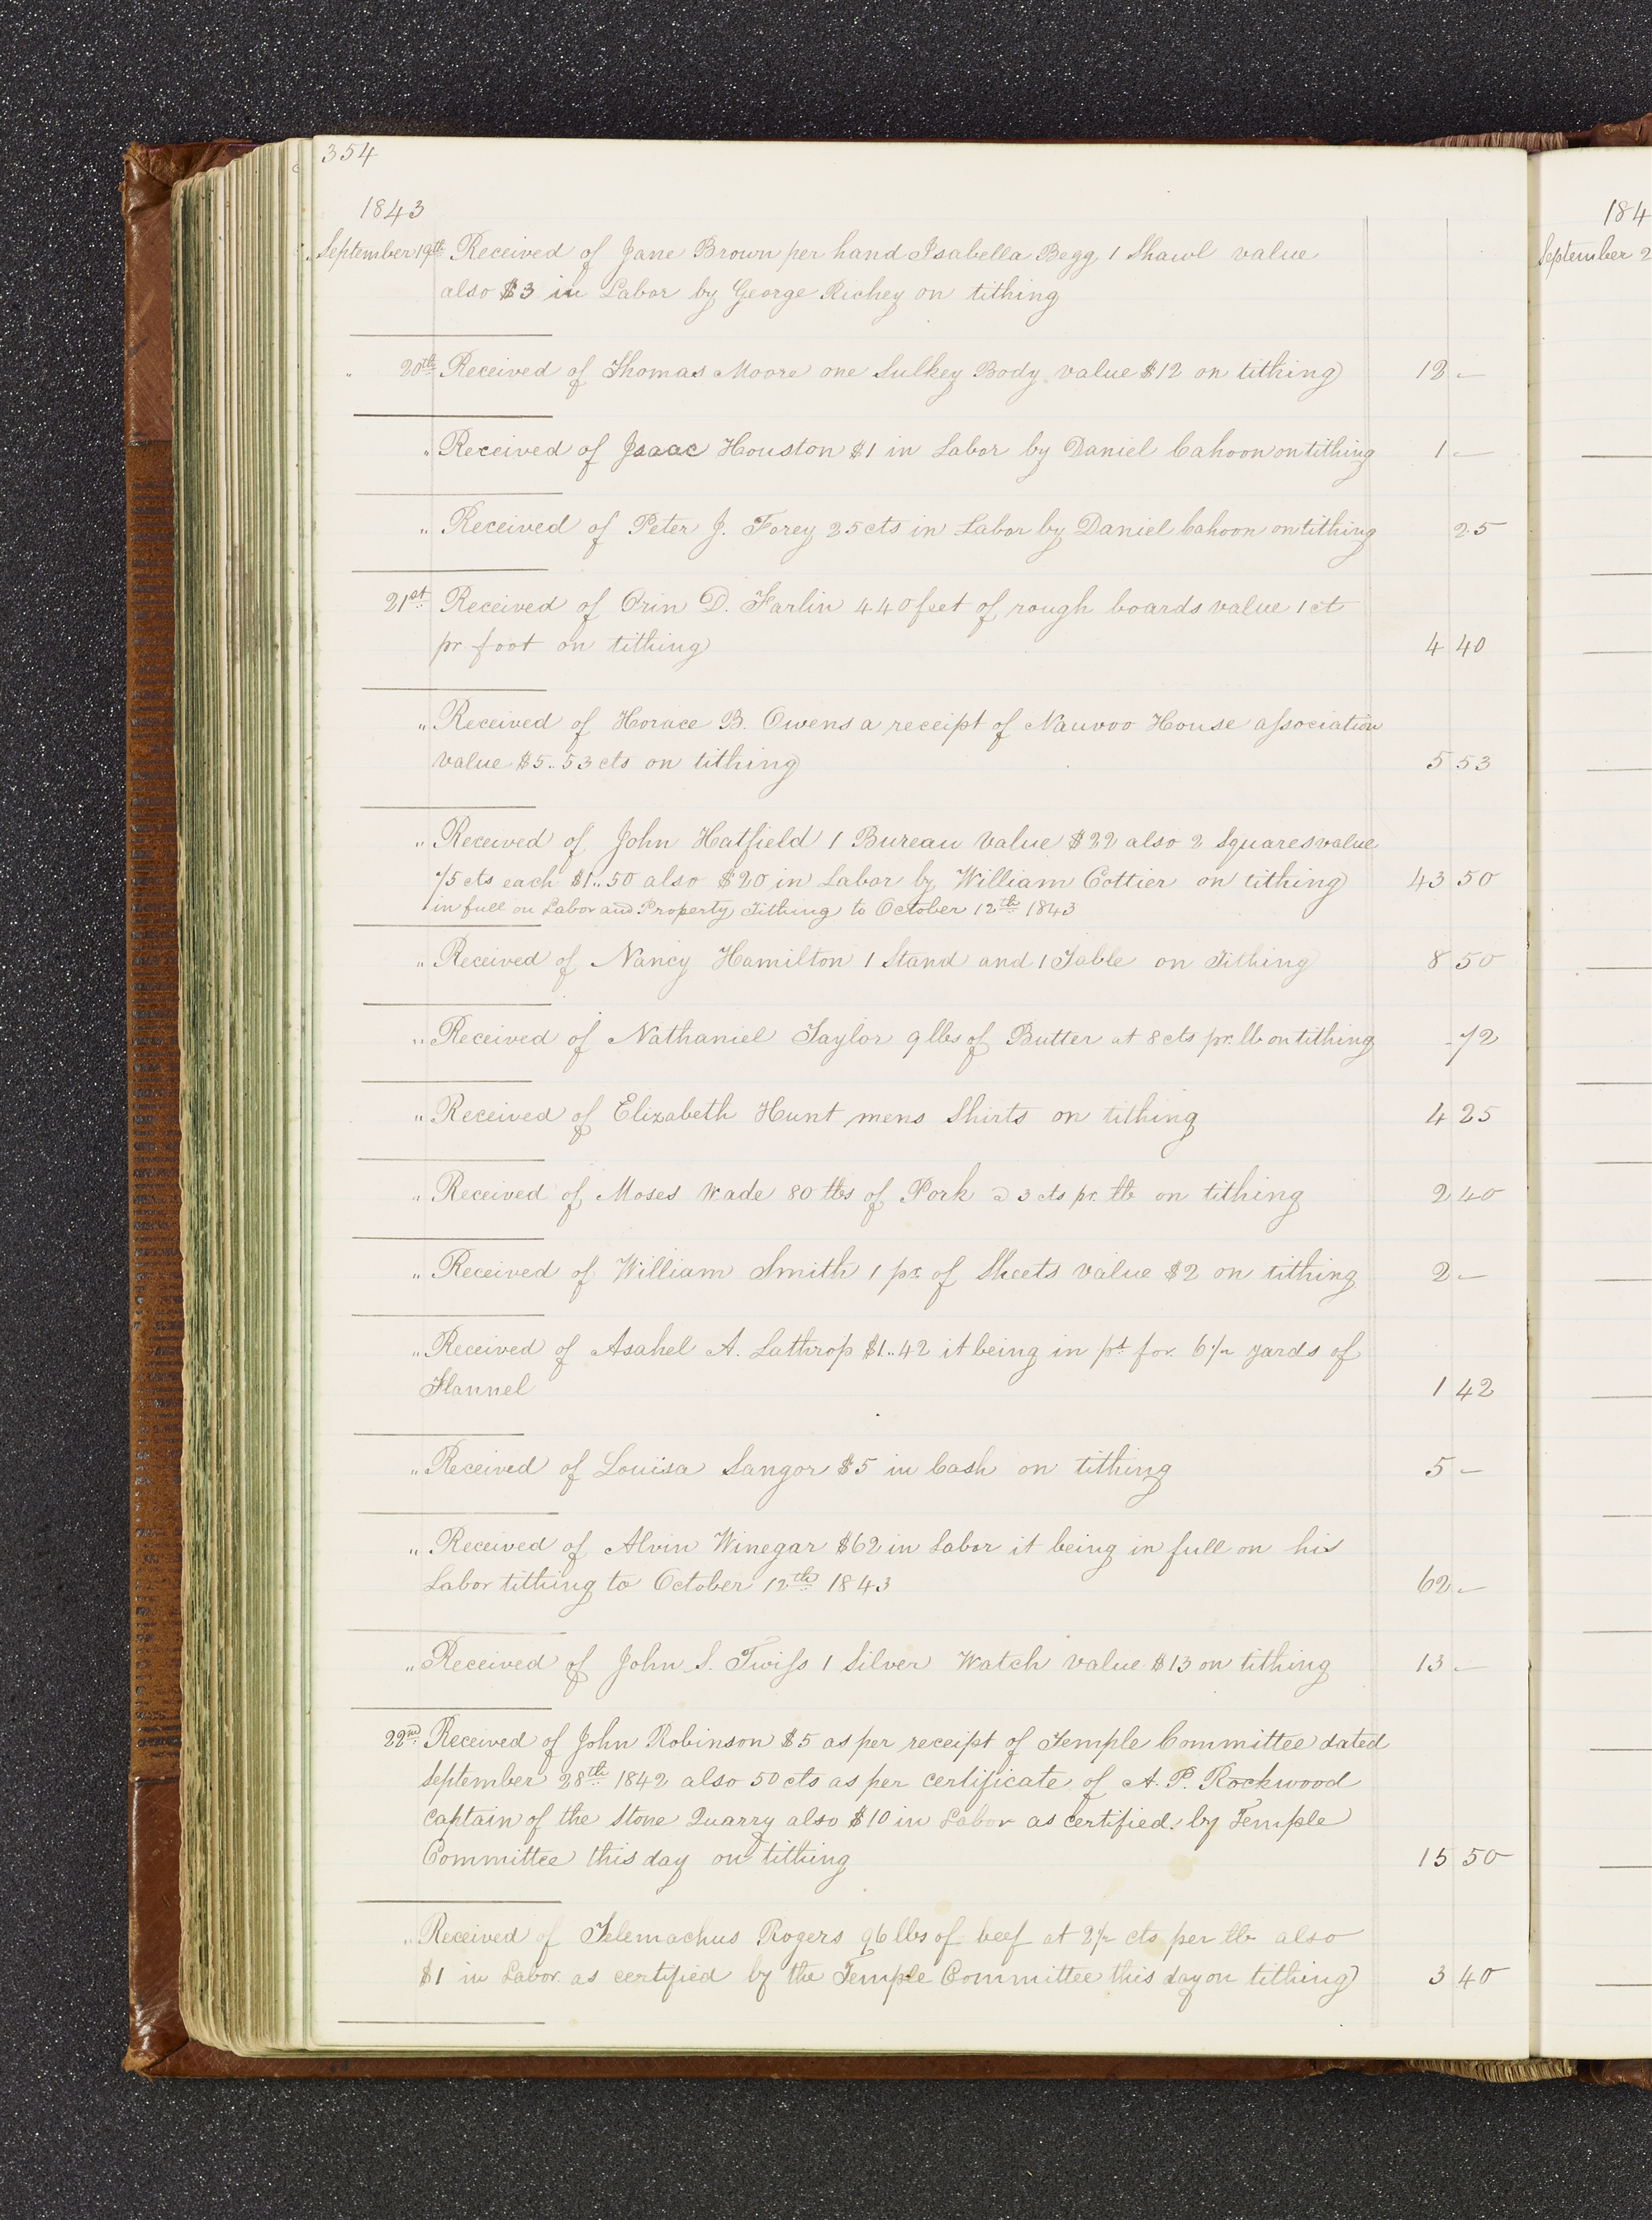 354
1843
" September 19th Received of Jane Brown per hand Isabella Begg 1 Shawl value
also $3 in Labor by George Richey on tithing
" 20th Received of Thomas Moore one Sulkey Body value $12 on tithing 12 —
" Received of Isaac Houston $1 in Labor by Daniel Cahoon on tithing 1 —
" Received of Peter J. Forey 25 cts in Labor by Daniel Cahoon on tithing 25
21st Received of Orin D. Farlin 440 feet of rough boards value 1 ct
pr foot on tithing 4 40
" Received of Horace B. Owens a receipt of Nauvoo House association
value $5..53 cts on tithing 5 53
" Received of John Hatfield 1 Bureau value $22 also 2 Squares value
75 cts each $1..50 also $20 in Labor by William Cottier on tithing 43 50
in full on Labor and Property Tithing to October 12th 1843
" Received of Nancy Hamilton 1 Stand and 1 Table on Tithing 8 50
" Received of Nathaniel Taylor 9 lbs of Butter at 8 cts pr. lb on tithing - 72
" Received of Elizabeth Hunt mens Shirts on tithing 4 25
" Received of Moses Wade 80 lbs of Pork @ 3 cts pr. lb on tithing 2 40
" Received of William Smith 1 pr. of Sheets value $2 on tithing 2 —
" Received of Asahel A. Lathrop $1..42 it being in pt for 6 1/2 yards of
Flannel 1 42
" Received of Louisa Sangor $5 in Cash on tithing 5 —
" Received of Alvin Winegar $62 in Labor it being in full on his
Labor tithing to October 12th 1843 62 —
" Received of John S. Twiss 1 Silver Watch value $13 on tithing 13 —
22nd Received of John Robinson $5 as per receipt of Temple Committee dated
September 28th 1842 also 50 cts as per certificate of A. P. Rockwood
captain of the Stone Quarry also $10 in Labor as certified by Temple
Committee this day on tithing 15 50
" Received of Telemachus Rogers 96 lbs of beef at 2 1/2 cts per lb also
$1 in Labor as certified by the Temple Committee this day on tithing 3 40
184
September 2